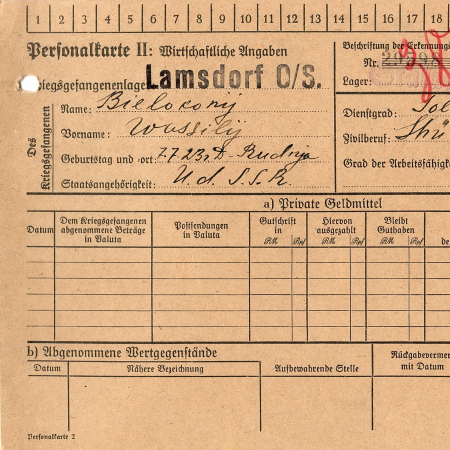 1 2 3 4 5 6 7 8 9 10 11 12 13 14 15 16 17 18
Personalkarte II: Wirtschaftliche Angaben
Kriegsgefangenenlager Lamsdorf O/S.
Beschriftung der Erkennungs
Nr.
Lager:
Des Kriegsgefangenen
Name: Bielokonij
Vorname: Wassilij
Geburtstag und -ort: 7.7.23, D-Rudnja
Staatsangehörigkeit: U.d.S.S.R.
Dienstgrad: Sol
Zivilberuf:
Grad der Arbeitsfähigk
a) Private Geldmittel
Datum
Dem Kriegsgefangenen
abgenommene Beträge
in Valuta
Postsendungen
in Valuta
Gutschrift
in
RM Rpf
Hiervon
ausgezahlt
RM Rpf
Bleibt
Guthaben
RM Rpf
de
b) Abgenommene Wertgegenstände
Datum
Nähere Bezeichnung
Aufbewahrende Stelle
Rückgabeverme
mit Datum
Personalkarte 2